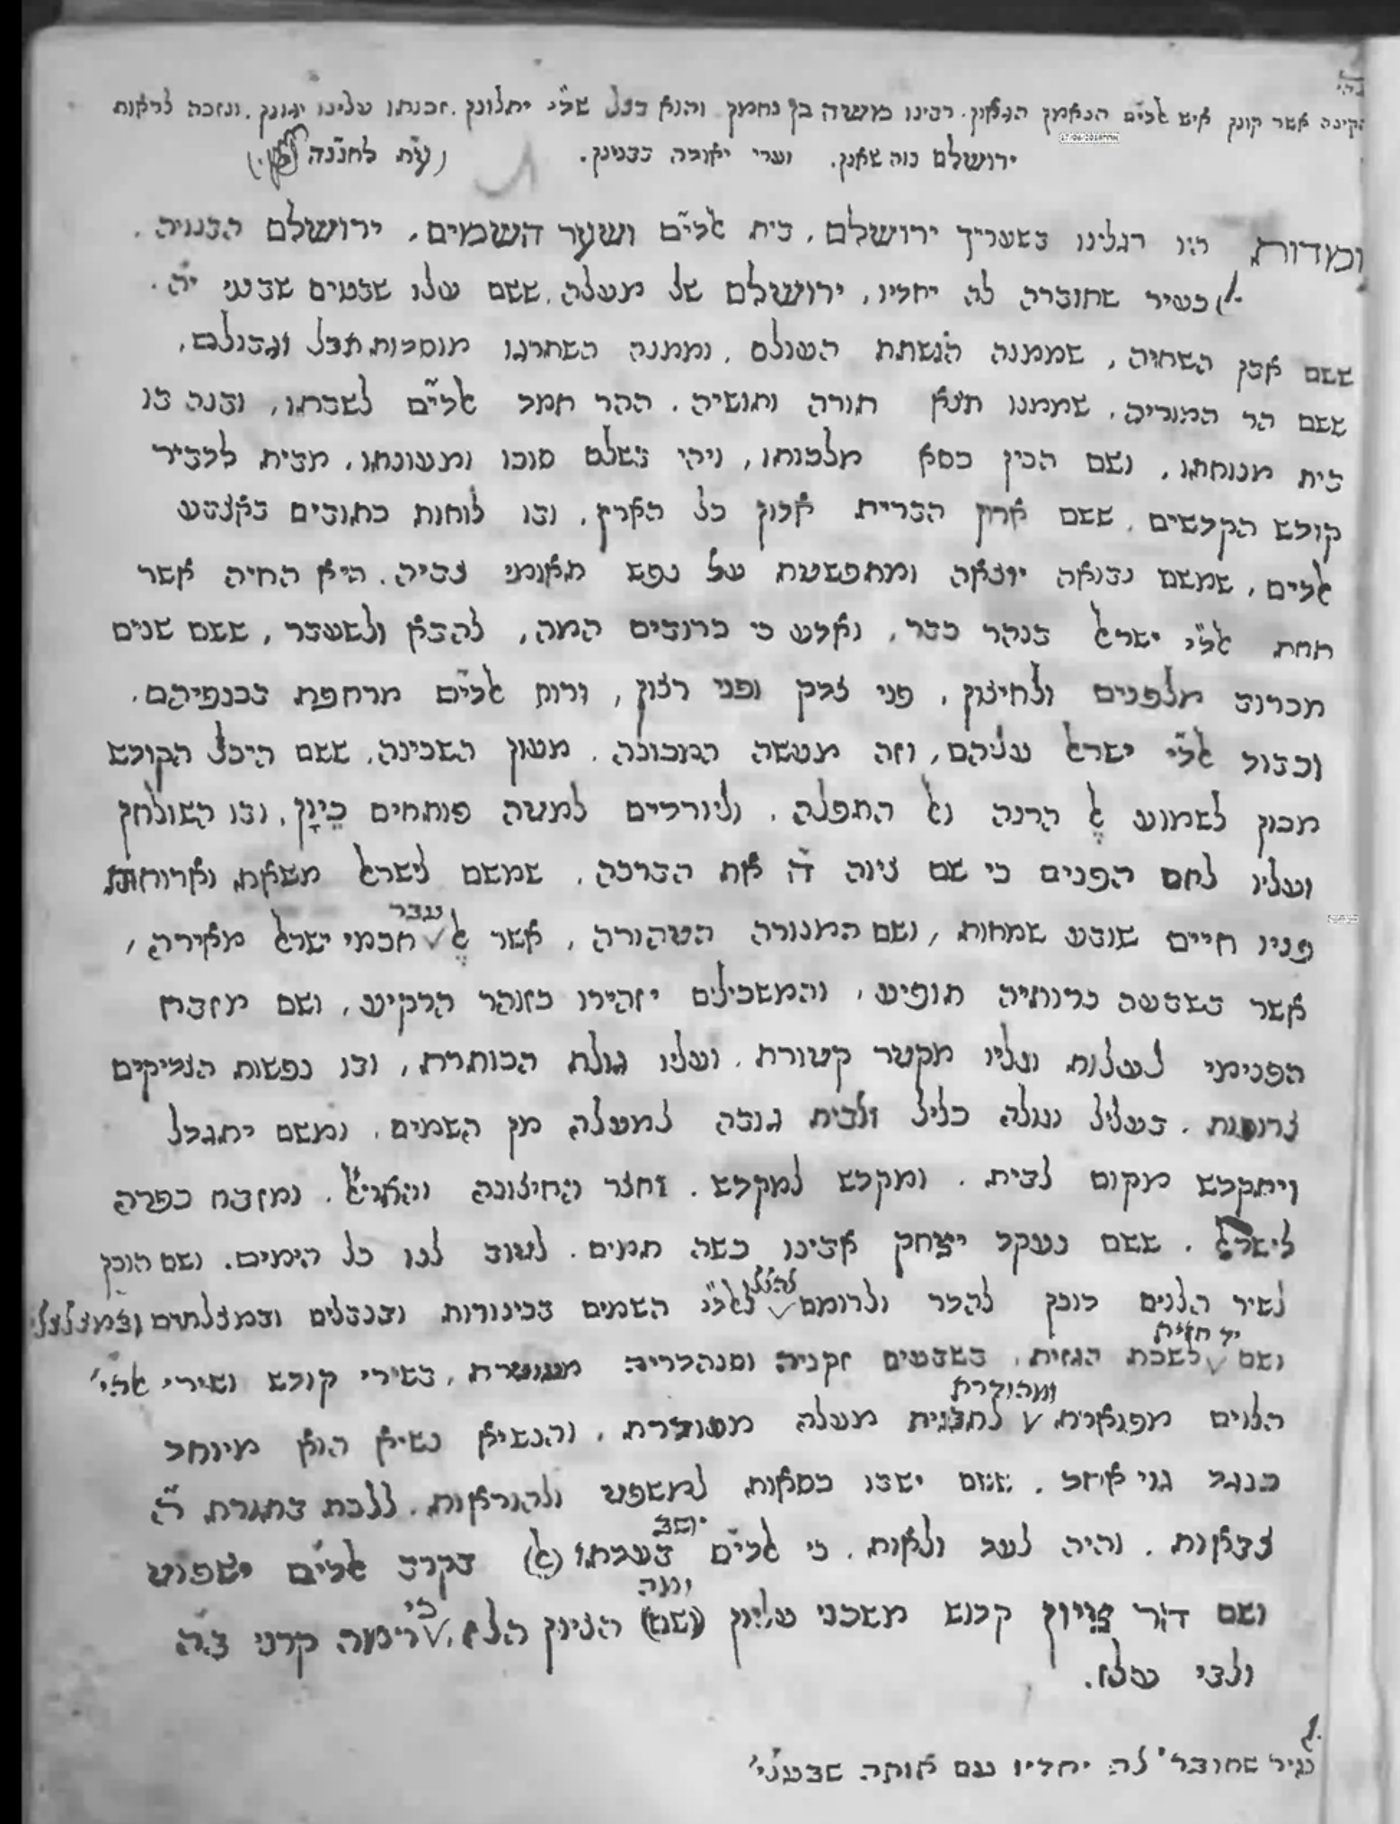 הקינה אשר קונן איש אלים הנאמן הגאון. רבינו משה בן נחמן והוא בצל שדי יתלונן. זכותו עלינו יגונן. ונזכה לראות
ירושלם נוה שאנן. וערי יאודה כבנינן. (עת לחננה)
עומדות היו רגלינו בשעריך ירושלם, בית אלים ושער השמים, ירושלם הבנויה.
כעיר שחוברה לה יחדיו, ירושלם של מעלה, ששם עלו שבטים שבטי יה.
ששם אבן השתיה, שממנה הושתת העולם, וממנה השתרגו מוסדות תבל וגבולם,
ששם הר המוריה, שממנו תצא תורה ותושיה. ההר חמד אלים לשבתו, ובנה בו
בית מנוחתו, ושם הכין כסא מלכותו, ויהי בשלם סוכו ומעונתו, מבית לדביר
קודש הקדשים, ששם ארון הברית אדון כל הארץ, ובו לוחות כתובים באצבע
אלים, שמשם נבואה יוצאה ומתפשטת על נפש תאומי צביה. היא החיה אשר
תחת אלי ישראל בנהר כבר, ואדע כי כרובים המה, להבא ולשעבר, ששם שנים
מכרוב מלפנים ולחיצון, פני צדק ופני רצון, ורוח אלים מרחפת בכנפיהם.
וכבוד אלי ישראל עליהם, וזה מעשה המכונה, מעון השכינה, ששם היכל הקודש
מכון לשמוע אל הרנה ואל התפלה, וליורדים למטה פותחים כיון, ובו השולחן
ועליו לחם הפנים כי שם ציוה ה את הברכה, שמשם לישראל משאת וארוחות
פניו חיים שובע שמחות, ושם המנורה הטהורה, אשר אל עבר חכמי ישראל מאירה,
אשר בשבעה נרותיה תופיע, והמשכילים יזהירו כזוהר הרקיע, ושם מזבח
הפנימי לעלות ועליו מקטר קטורת, ועליו גולת הכותרת, ובו נפשות הצדיקים
צרורות, בעליל ועולה כליל ולבית גובה למעלה מן השמים, ומשם יתגדל
ויתקדש מקום לבית, ומקדש למקדש, וחצר החיצונה והאריאל, ומזבח כפרה
לישראל, ששם נעקד יצחק אבינו כשה תמים, לטוב לנו כל הימים, ושם הוכן
לשיר הלוים דוכן להדר ולרומם להלל לאלי השמים בכינורות ובנבלים ובמצלתים ובמצלצלי
ושם לשכת הגזית, בשבטים זקניה וסנהדריה מעוטרת, בשירי קודש ושירי
הלוים מפוארת ומהודרת לתבנית מעלה מסודרת, והנשיא נשיא הוא מיוחד
כנגד גוי אחד, ששם ישבו כסאות למשפט ולהוראות, ללכת בתורת ה
צבאות, והיה לעד ולאות, כי אלים יושב בעדתו בקרב אלים ישפוט
ושם הר ציון קדוש משכני עליון (ושם) ומה הציון הלז, כי רימה קרני בה
ולבי עלז.
כעיר שחובר' לה יחדיו עם אותה שבעלי'